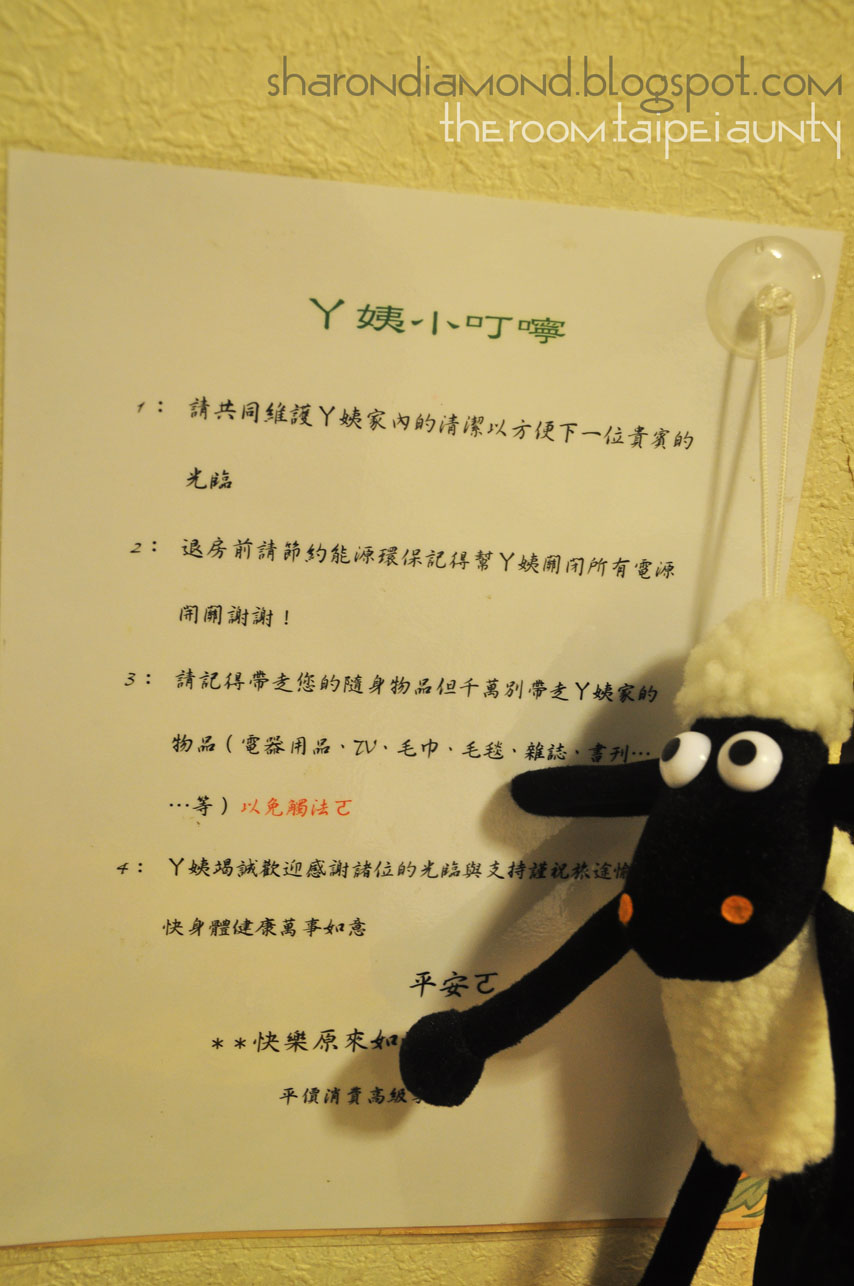 sharondiamond.blogspot.com
theroom.taipeiaunty
ㄚ姨小叮嚀
1： 請共同維護ㄚ姨家內的清潔以方便下一位貴賓的
光臨
2： 退房前請節約能源環保記得幫ㄚ姨關閉所有電源
開關謝謝！
3： 請記得帶走您的隨身物品但千萬別帶走ㄚ姨家的
物品（電器用品、TV、毛巾、毛毯、雜誌、書刊…
…等）以免觸法ㄛ
4： ㄚ姨竭誠歡迎感謝諸位的光臨與支持謹祝旅途愉
快身體健康萬事如意
平安ㄛ
**快樂原來如
平價消費高級